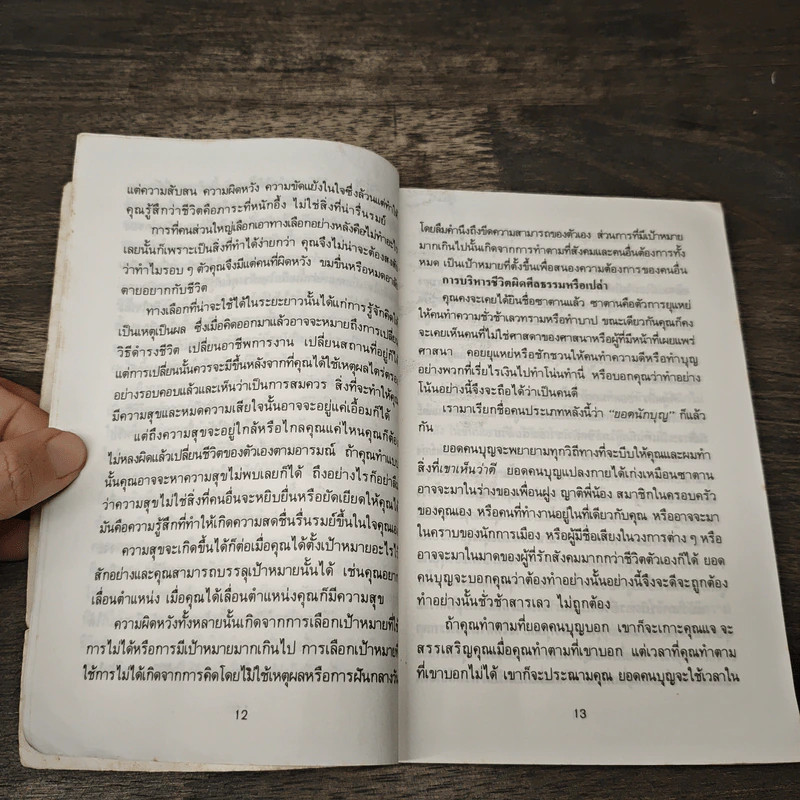 แต่ความสับสน ความผิดหวัง ความขัดแย้งในใจซึ่งล้วนแต่ทำให้
คุณรู้สึกว่าชีวิตคือภาระที่หนักอึ้ง ไม่ใช่สิ่งที่น่ารื่นรมย์
การที่คนส่วนใหญ่เลือกเอาทางเลือกอย่างหลังคือไม่ทำอะไร
เลยนั้นก็เพราะเป็นสิ่งที่ทำได้ง่ายกว่า คุณจึงไม่น่าจะต้อง
ว่าทำไมรอบ ๆ ตัวคุณจึงมีแต่คนที่ผิดหวัง ขมขื่นหรือหมด
ตายอยากกับชีวิต
ทางเลือกที่น่าจะใช้ได้ในระยะยาวนั้นได้แก่การรู้จักคิด
เป็นเหตุเป็นผล ซึ่งเมื่อคิดออกมาแล้วอาจจะหมายถึงการ
วิธีดำรงชีวิต เปลี่ยนอาชีพการงาน เปลี่ยนสถานที่อยู่ก็
แต่การเปลี่ยนนั้นควรจะมีขึ้นหลังจากที่คุณได้ใช้เหตุผล
อย่างรอบคอบแล้วและเห็นว่าเป็นการสมควร สิ่งที่จะทำให้
มีความสุขและหมดความเสียใจนั้นอาจจะอยู่แค่เอื้อมก็ได้
แต่ถึงความสุขจะอยู่ใกล้หรือไกลคุณแค่ไหนคุณก็ต้อง
ไม่หลงผิดแล้วเปลี่ยนชีวิตของตัวเองตามอารมณ์ ถ้าคุณทำ
นั้นคุณอาจจะหาความสุขไม่พบเลยก็ได้ ถึงอย่างไรก็อย่า
ว่าความสุขไม่ใช่สิ่งที่คนอื่นจะหยิบยื่นหรือยัดเยียดให้คุณ
มันคือความรู้สึกที่ทำให้เกิดความสดชื่นรื่นรมย์ขึ้นในใจคุณ
ความสุขจะเกิดขึ้นได้ก็ต่อเมื่อคุณได้ตั้งเป้าหมายอะไร
สักอย่างและคุณสามารถบรรลุเป้าหมายนั้นได้ เช่นคุณ
เลื่อนตำแหน่ง เมื่อคุณได้เลื่อนตำแหน่งคุณก็มีความสุข
ความผิดหวังทั้งหลายนั้นเกิดจากการเลือกเป้าหมายที่
การไม่ได้หรือการมีเป้าหมายมากเกินไป การเลือกเป้าหมาย
ใช้การไม่ได้เกิดจากการคิดโดยไม่ใช้เหตุผลหรือการฝันกลาง
12
โดยลืมคำนึงถึงขีดความสามารถของตัวเอง ส่วนการที่มีเป้าหมาย
มากเกินไปนั้นเกิดจากการทำตามที่สังคมและคนอื่นต้องการทั้ง
หมด เป็นเป้าหมายที่ตั้งขึ้นเพื่อสนองความต้องการของคนอื่น
การบริหารชีวิตผิดศีลธรรมหรือเปล่า
คุณคงจะเคยได้ยินชื่อซาตานแล้ว ซาตานคือตัวการยุแหย่
ให้คนทำความชั่วช้าเลวทรามหรือทำบาป ขณะเดียวกันคุณก็คง
จะเคยเห็นคนที่ไม่ใช่ศาสดาของศาสนาหรือผู้ที่มีหน้าที่เผยแพร่
ศาสนา คอยยุแหย่หรือชักชวนให้คนทำความดีหรือทำบุญ
อย่างพวกที่เรี่ยไรเงินไปทำโน่นทำนี่ หรือบอกคุณว่าทำอย่าง
โน้นอย่างนี้จึงจะถือได้ว่าเป็นคนดี
เรามาเรียกชื่อคนประเภทหลังนี้ว่า “ยอดนักบุญ” ก็แล้ว
กัน
ยอดคนบุญจะพยายามทุกวิถีทางที่จะบีบให้คุณและผมทำ
สิ่งที่เขาเห็นว่าดี ยอดคนบุญแปลงกายได้เก่งเหมือนซาตาน
อาจจะมาในร่างของเพื่อนฝูง ญาติพี่น้อง สมาชิกในครอบครัว
ของคุณเอง หรือคนที่ทำงานอยู่ในที่เดียวกับคุณ หรืออาจจะมา
ในคราบของนักการเมือง หรือผู้มีชื่อเสียงในวงการต่าง ๆ หรือ
อาจจะมาในมาดของผู้ที่รักสังคมมากกว่าชีวิตตัวเองก็ได้ ยอด
คนบุญจะบอกคุณว่าต้องทำอย่างนั้นอย่างนี้จึงจะดีจะถูกต้อง
ทำอย่างนั้นชั่วช้าสารเลว ไม่ถูกต้อง
ถ้าคุณทำตามที่ยอดคนบุญบอก เขาก็จะเกาะคุณแจ จะ
สรรเสริญคุณเมื่อคุณทำตามที่เขาบอก แต่เวลาที่คุณทำตาม
ที่เขาบอกไม่ได้ เขาก็จะประณามคุณ ยอดคนบุญจะใช้เวลาใน
13